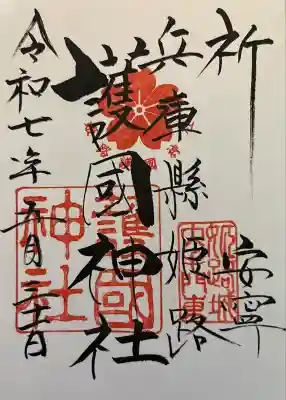 祈 安寧
兵庫縣姫路
護國神社
令和七年五月三十日
護國
神社